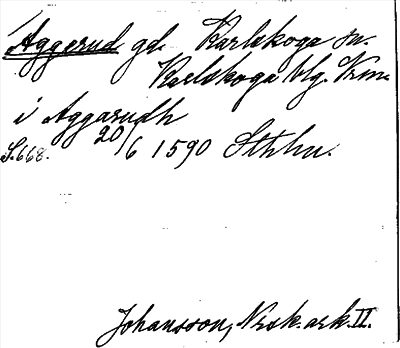 Aggerud gd. Karlskoga sn.
Karlskoga blg. Vrm.
i Aggarudh
S. 668. 20/6 1590 Sthhn.
Johansson, Nrsk. ark. II.